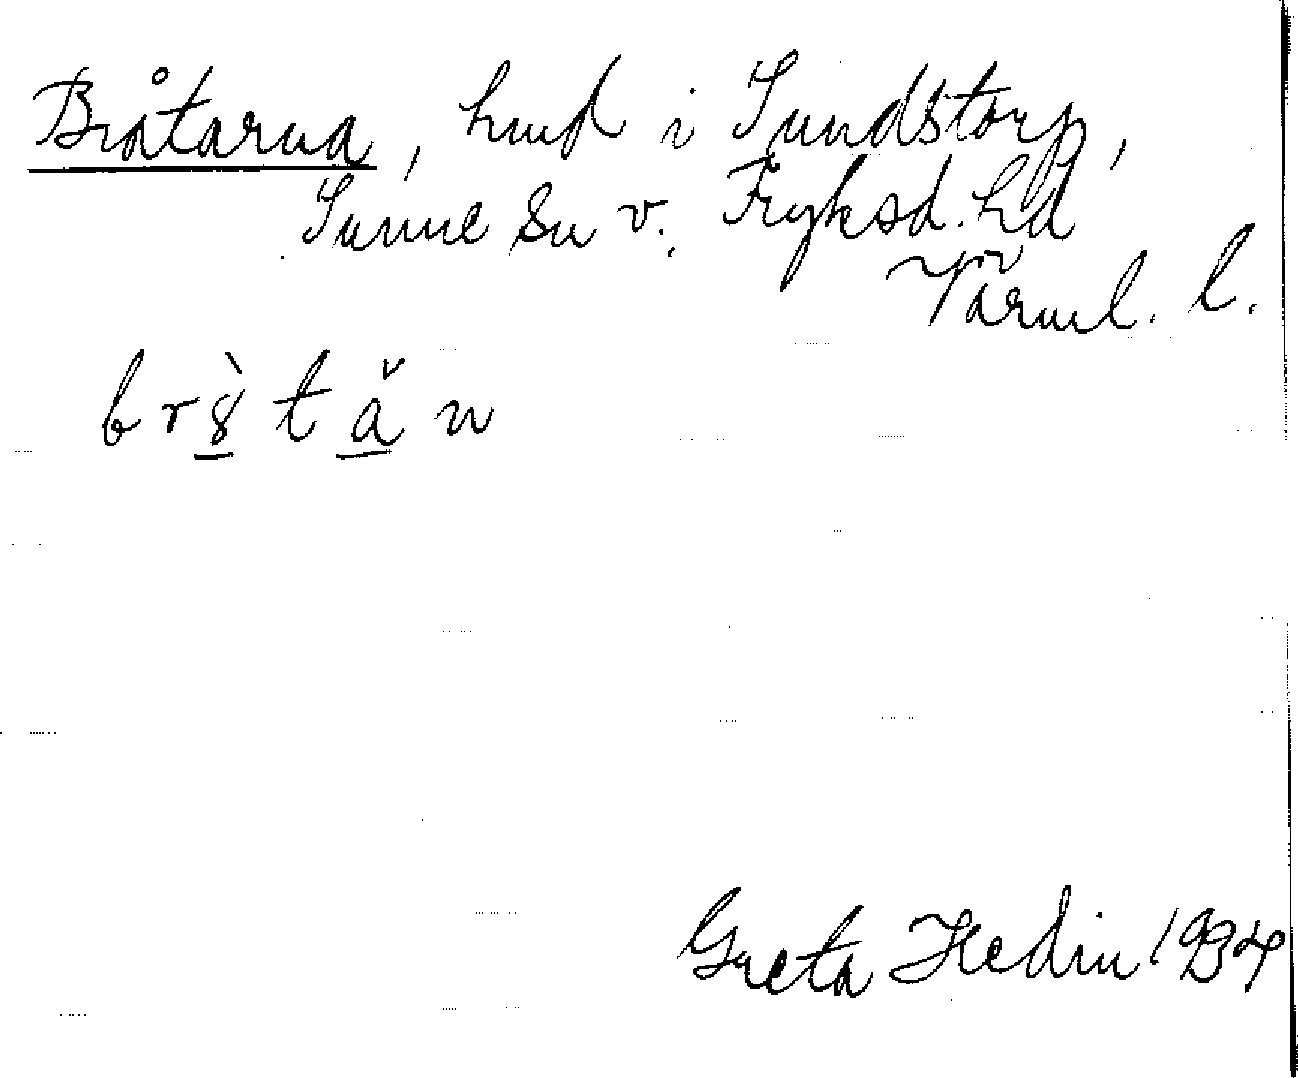 Bråtarna, hmd i Sundstorp,
Sunne sn v. Fryksd. hd
Värml. l.
br8̠̀tǎ̠n
Greta Hedin 1934